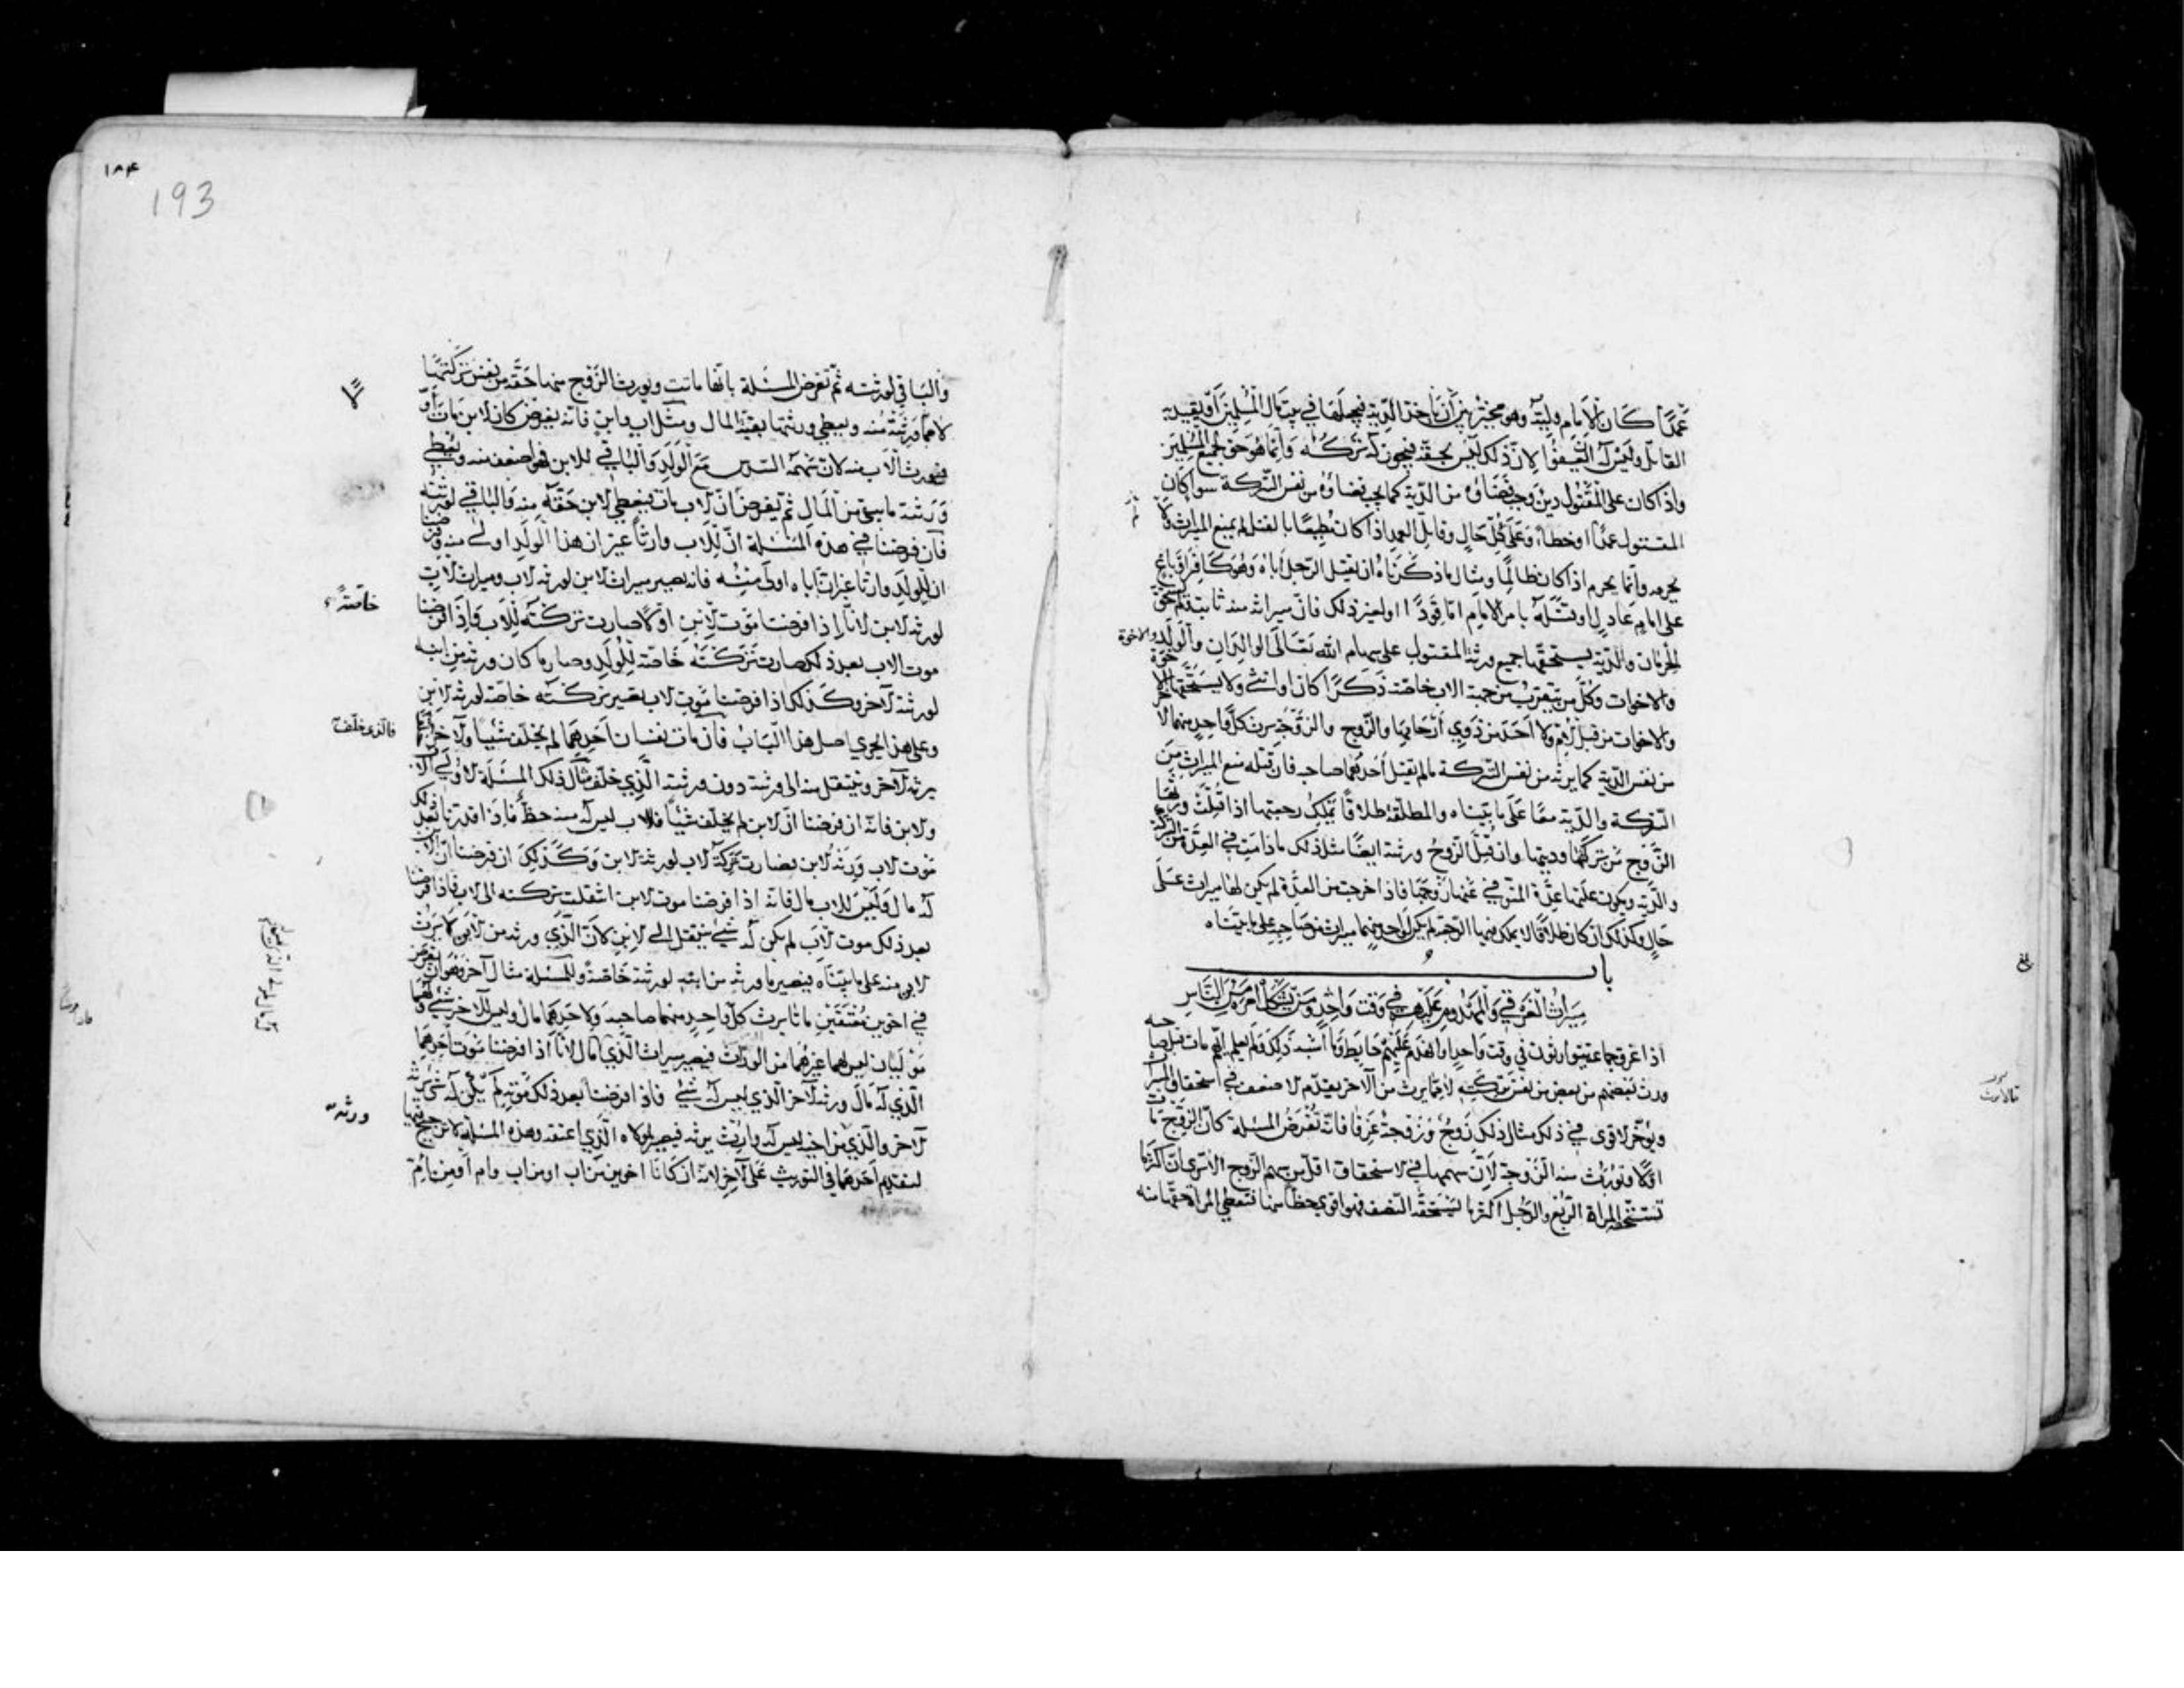 عمدًا كان الامام وليّه وهو مخيّر بين أن ياخذ الدية فيجعلها في بيت مال المسلمين أو يقيد به
القاتل وليس له العفو لانّ ذلك ليس بحقّه فيجوز له تركه وانّما هو حق لجميع المسلمين
واذا كان على المقتول دين وجب قضاؤه من الدّية كما يجب قضاؤه من نفس التركة سوا كان
المقتول عمدًا او خطاء وعلى كلّ حال وقاتل العمد اذا كان مطيعًا بالقتل لم يمنع الميراث ولا
يحرمه وانّما يحرم اذا كان ظالمًا ومثال ما ذكرناه ان يقتل الرّجل أباه وهو كافر او باغ
على امام عادل او قتله بامر الامام امّا قودًا او لغير ذلك فانّ ميراثه منه ثابت لم يستحق
الحرمان والدّية يستحقّها جميع ورثة المقتول على سهام الله تعالى الوالدان والولد والاخوة
والاخوات وكلّ من يتقرّب من جهة الاب خاصّة ذكرًا كان او انثى ولا يستحقّها الاخوة
والاخوات من قبل الام ولا احد من ذوي أرحامها والزوج والزوجة يرث كلّ واحد منهما
من نفس الدّية كما يرثه من نفس التركة ما لم يقتل أحدهما صاحبه فان قتله منع الميراث من
التركة والدّية معًا على ما بيّناه والمطلّقة طلاقًا يملك رجعتها اذا قتلت ورثها
الزّوج من تركتها وديتها وان قتل الزّوج ورثته ايضًا مثل ذلك ما دامت في العدّة من التركة
والدّية ويكون عليها عدّة المتوفى عنها زوجها فاذا خرجت من العدّة لم يكن لها ميراث على
حال وكذلك ان كان طلاقًا لا يملك فيها الرّجعة لم يكن لواحد منهما ميراث من صاحبه على ما بيّناه
باب
ميراث الغرقى والمهدوم عليهم في وقت واحد ومن يشكل امره من النّاس
اذا غرق جماعة يتوارثون في وقت واحد او انهدم عليهم حايط وما أشبه ذلك ولم يعلم ايّهم مات قبل صاحبه
ورث بعضهم من بعض من نفس تركته لا ممّا يرث من الآخر يقدّم لاضعف في استحقاق الميراث
ويؤخّر لاقوى في ذلك مثال ذلك زوج وزوجة غرقا فانّه تفرض المسئلة كانّ الزوج مات
اوّلا وتورث منه الزّوجة لانّ سهمها في لاستحقاق اقلّ من سهم الزوج الا ترى ان اكثر ما
تستحقّه المراة الرّبع والرّجل اكثر ما يستحقّه النّصف فهو اقوى حظًّا منها فتعطى المراة حقّها منه
بلغ
١٨٤
193
والباقي لورثته ثمّ تفرض المسئلة بانّها ماتت ويورث الزّوج منها حقّه من نفس تركتها
لا ممّا ورثته منه ويعطى ورثتها بقيّة المال ومثل اب وابن فانّه يفرض كان لابن مات أوّلًا
فيورث الاب منه لانّ سهمه السّدس مع الولد والباقي للابن فهو اضعف منه ويعطى
ورثته ما يبقى من المال ثم يفرض انّ لاب مات فيعطى لابن حقّه منه والباقي لورثته
فان فرضنا في هذه المسئلة انّ للاب وارثًا غير ان هذا الولد اولى منه وفرضنا
ان للولد وارثًا غير انّ أباه اولى منه فانه يصير ميراث لابن لورثة لاب وميراث لاب
لورثة لابن لانّا اذا فرضنا موت لابن اوّلًا صارت تركته للاب واذا فرضنا
موت الاب بعد ذلك صارت تركته خاصّة للولد وصار ما كان ورثه من ابنه
خاصّة
لورثته لآخر وكذلك اذا فرضنا موت لاب تصير تركته خاصّة لورثة لابن
وعلى هذا يجري اصل هذا الباب فان مات نفسان أحدهما لم يخلّف شيئًا ولآخر
فالّذى لم يخلف
يرثه لآخر وينتقل منه الى ورثته دون ورثة الّذي خلّف مثال ذلك المسئلة لاولى الاب
ولابن فانّه ان فرضنا انّ لابن لم يخلّف شيئًا فللاب ليس له منه حظّ فاذا قدّرنا بعد ذلك
موت لاب ورثه لابن فصارت تركة لاب لورثة لابن وكذلك ان فرضنا انّ الابن
له مال وليس للاب مال فانّه اذا فرضنا موت لابن انتقلت تركته الى لاب فاذا فرضنا
بعد ذلك موت لاب لم يكن له شيء ينتقل الى لابن لانّ الّذي ورثه من لابن لا يرث
لابن منه على ما بيّناه فيصير ما ورثه من ابنه لورثته خاصّة وللمسئلة مثال آخر وهو ان
في اخوين معتقين ماتا يرث كلّ واحد منهما صاحبه ولاحدهما مال وليس للآخر شيء ولهما
موليان ليس لهما غيرهما من الورّاث فيصير ميراث الّذي له مال لانّا اذا فرضنا موت أحدهما
الّذي له مال ورثه لآخر الّذي ليس له شيء فاذا فرضنا بعد ذلك موته لم يكن له شيء يرثه
لآخر والّذي من اخيه ليس له وارث يرثه فيصير لمولاه الّذي اعتقه وهذه المسئلة لا ترجيح فيها
ورثه
لتقديم أحدهما في التوريث على لآخر لانّه ان كانا اخوين من اب او من اب وام أو من امّ